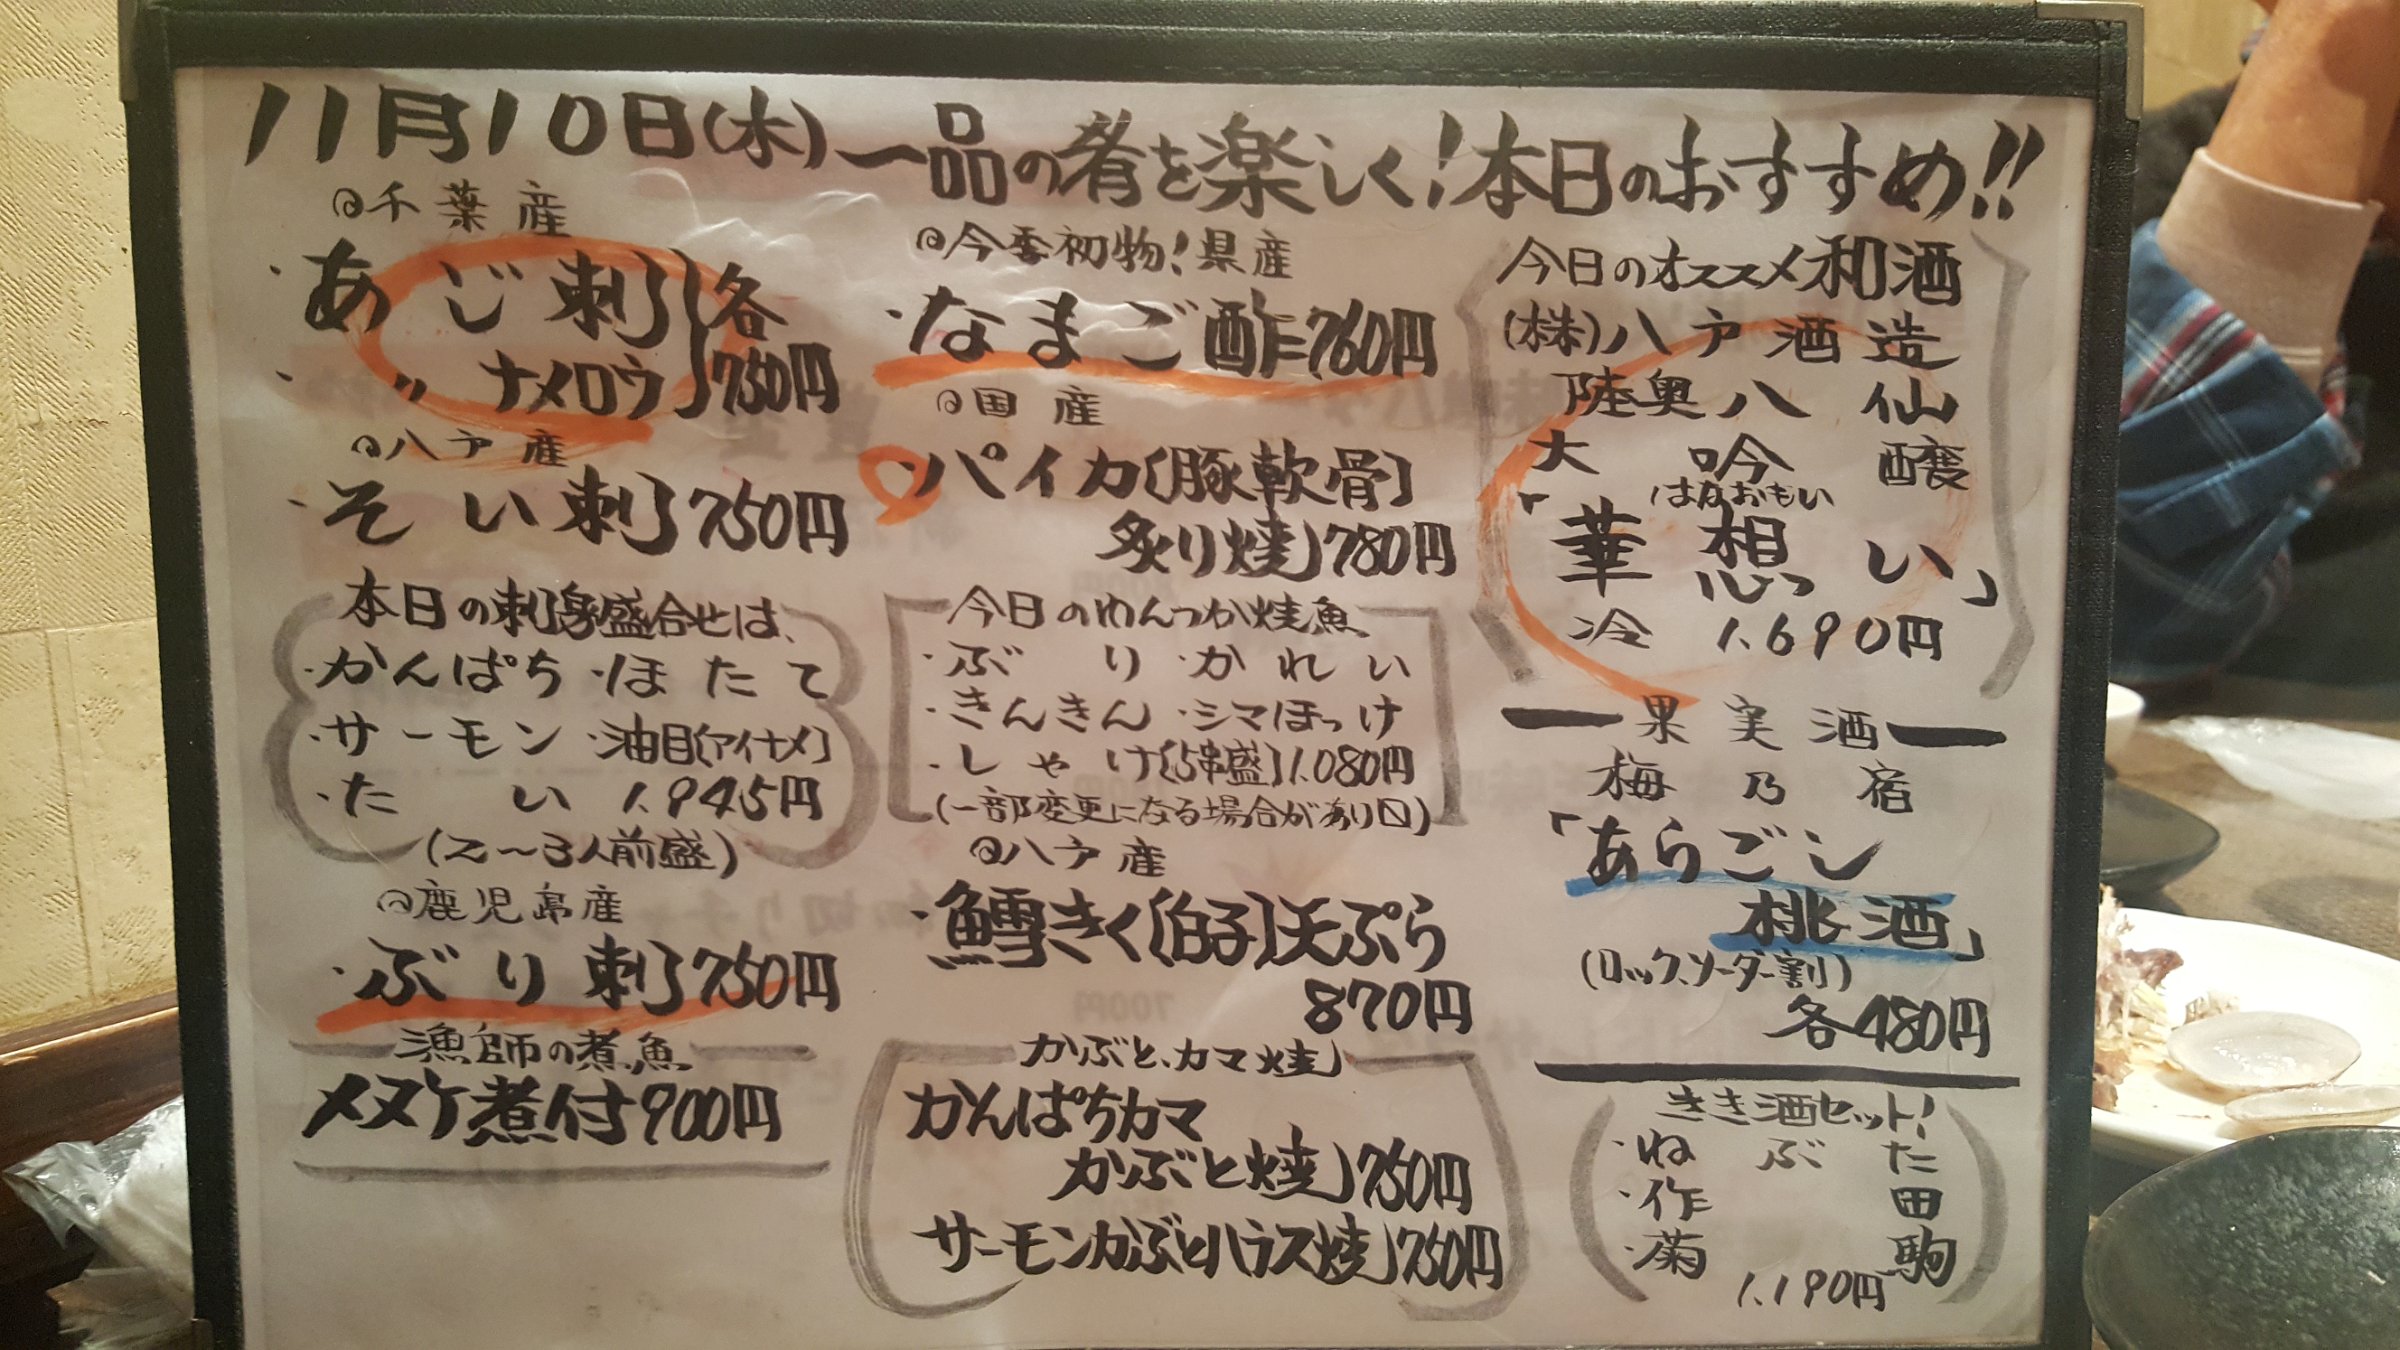 11月10日(木)一品の肴を楽しく!本日のおすすめ!!
@千葉産
・あじ刺 各
・〃 ナメロウ 750円
@八戸産
・そい刺 750円
本日の刺身盛合せは、
・かんぱち・ほたて
・サーモン・油目(アイナメ)
・たい 1.945円
(2〜3人前盛)
@鹿児島産
・ぶり刺 750円
漁師の煮魚
メヌケ煮付 900円
@今季初物!県産
・なまこ酢 760円
@国産
・パイカ(豚軟骨)
炙り焼 780円
今日のわんつか焼魚
・ぶり・かれい
・きんきん・シマほっけ
・しゃけ(5串盛)1.080円
(一部変更になる場合があり〼)
@八戸産
・鱈きく(白子)天ぷら
870円
かぶと、カマ焼
かんぱちカマ
かぶと焼 750円
サーモンかぶとハラス焼 750円
今日のオススメ和酒
(株)八戸酒造
陸奥八仙
大吟醸
はなおもい
「華想い」
冷 1.690円
果実酒
梅乃宿
「あらごし
桃酒」
(ロック、ソーダー割)
各480円
きき酒セット!
・ねぶた
・作田
・菊駒
1.190円